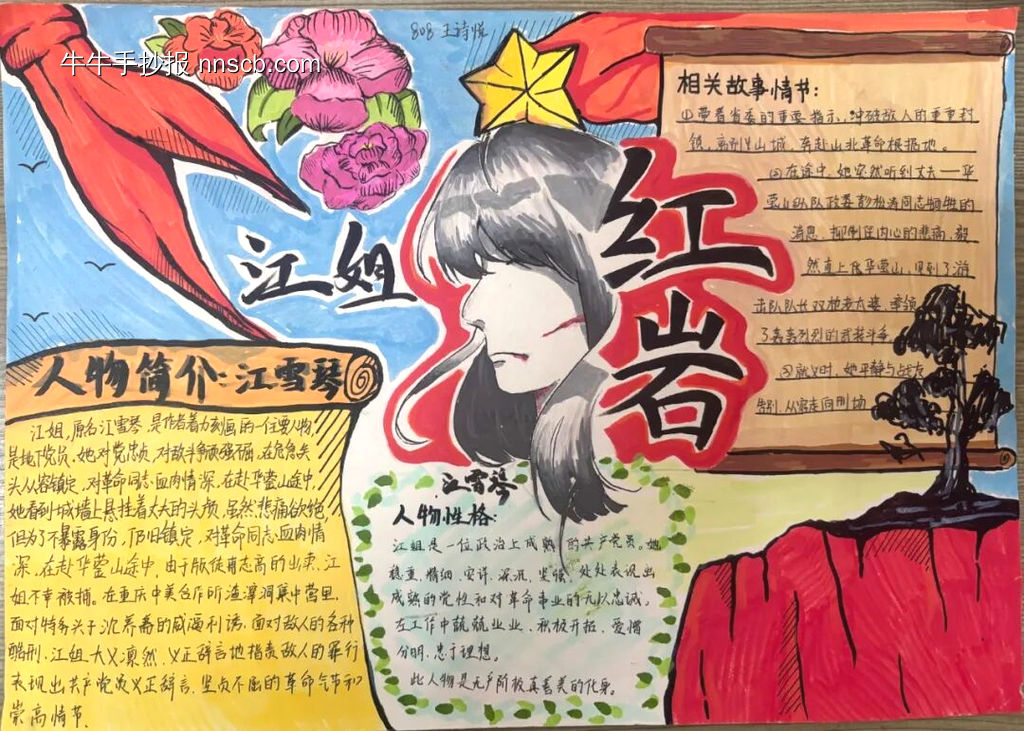 牛牛手抄报 nnscb.com
808 王诗悦
江姐
红岩
相关故事情节:
①带着省委的重要指示,冲破敌人的重重封
锁,离别山城,奔赴山北革命根据地。
②在途中,她突然听到丈夫——华
蓥山纵队政委彭松涛同志牺牲的
消息,抑制住内心的悲痛,毅
然直上华蓥山,见到了游
击队队长双枪老太婆,牵领
了轰轰烈烈的武装斗争
③就义时,她平静与战友
告别,从容走向刑场
人物简介:江雪琴
江姐,原名江雪琴,是作者着力刻画的一位重要人物,
是地下党员,她对党忠贞,对敌斗争顽强倔,在危急关
头从容镇定,对革命同志血肉情深,在赴华蓥山途中,
她看到城墙上悬挂着丈夫的头颅,虽然悲痛欲绝,
但为了不暴露身份,仍旧镇定,对革命同志血肉情
深,在赴华蓥山途中,由于叛徒甫志高的出卖,江
姐不幸被捕。在重庆中美合作所渣滓洞集中营里,
面对特务头子沈养斋的威逼利诱,面对敌人的各种
酷刑,江姐大义凛然,义正辞言地指责敌人的罪行
表现出共产党员义正辞言,坚贞不屈的革命气节和
崇高情节.
江雪琴
人物性格:
江姐是一位政治上成熟的共产党员。她
稳重、精细、安详、深沉、坚强,处处表现出
成熟的党性和对革命事业的无以忠诚。
在工作中兢兢业业、积极开拓、爱憎
分明、忠于理想。
此人物是无产阶级真善美的化身。